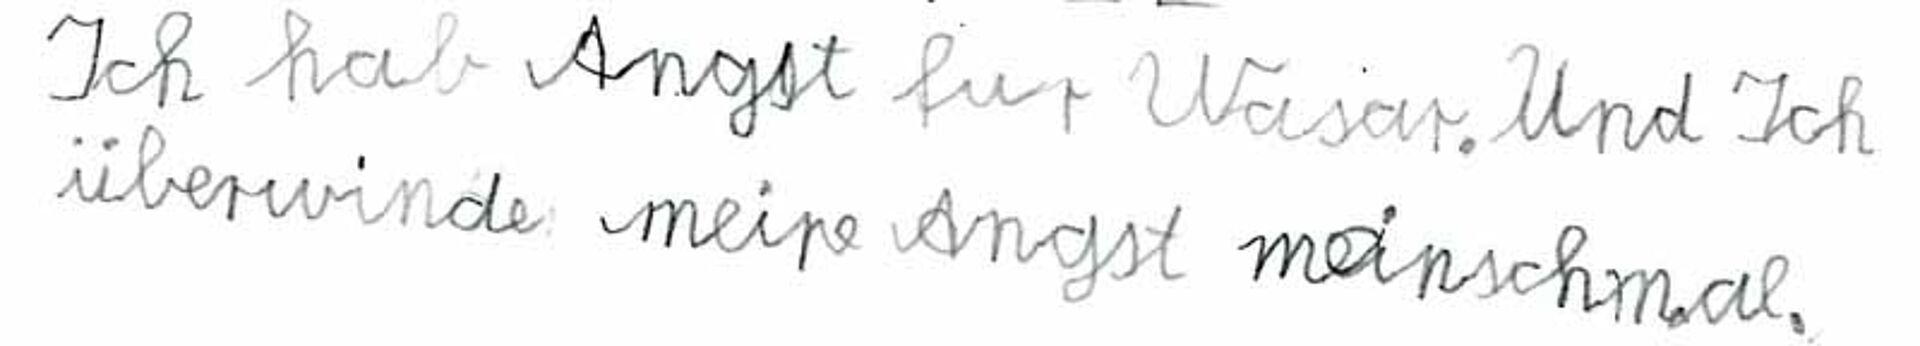 Ich hab Angst fur Wasar. Und Ich
überwinde meine Angst meinschmal.